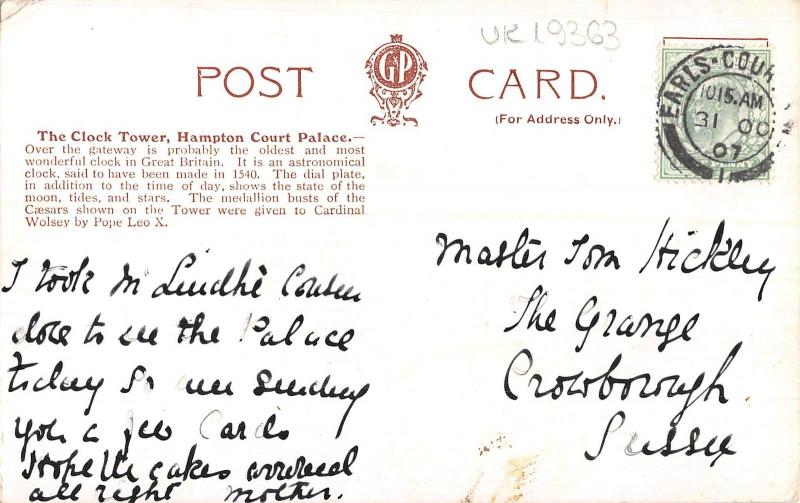 UK 19363
POST CARD.
GP
(For Address Only.)
EARLS-COU
10.15.AM
31 OC
07
The Clock Tower, Hampton Court Palace.—
Over the gateway is probably the oldest and most
wonderful clock in Great Britain. It is an astronomical
clock, said to have been made in 1540. The dial plate,
in addition to the time of day, shows the state of the
moon, tides, and stars. The medallion busts of the
Cæsars shown on the Tower were given to Cardinal
Wolsey by Pope Leo X.
I took
to see the Palace
today so am sending
you a few Cards
Hope the cakes arrived
all right Mother.
Master Tom Hickley
The Grange
Crowborough
Sussex